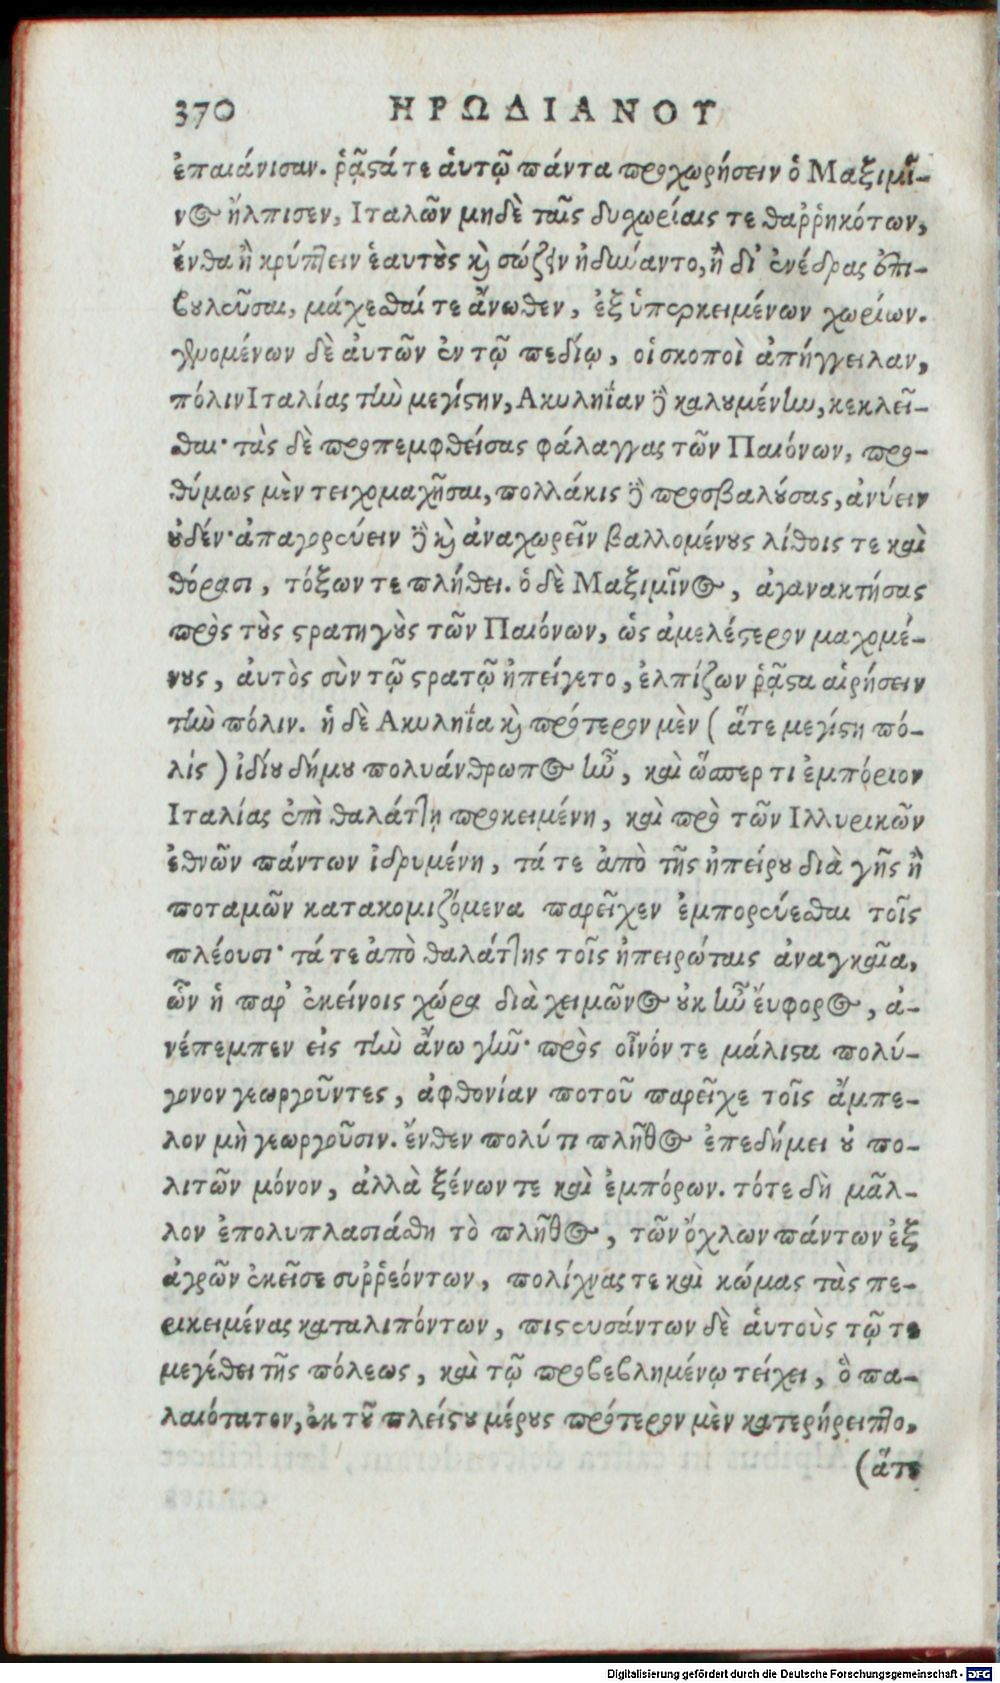 370 ΗΡΩΔΙΑΝΟΥ
ἐπαιάνισαν. ῥᾷστά τε ἁυτῷ πάντα προχωρήσειν ὁ Μαξιμῖ-
νος ἤλπισεν, Ιταλῶν μηδὲ ταῖς δυσχωρίαις τεθαῤῥηκότων,
ἔνθα ἢ κρύπτειν ἑαυτοὺς καὶ σώζειν ἠδύναντο, ἢ δι' ἐνέδρας ἐπι-
βουλεῦσαι, μάχεσθαί τε ἄνωθεν, ἐξ ὑπερκειμένων χωρίων.
γενομένων δὲ ἀυτῶν ἐν τῷ πεδίῳ, οἱ σκοποὶ ἀπήγγειλαν,
πόλιν Ιταλίας τὴν μεγίστην, Ακυληΐαν δὲ καλουμένην, κεκλεῖ-
σθαι· τὰς δὲ προπεμφθείσας φάλαγγας τῶν Παιόνων, προ-
θύμως μὲν τειχομαχῆσαι, πολλάκις δὲ προσβαλούσας, ἀνύειν
οὐδέν· ἀπαγορεύειν δὲ καὶ ἀναχωρεῖν βαλλομένους λίθοις τε καὶ
θόρασι, τόξων τε πλήθει. ὁ δὲ Μαξιμῖνος, ἀγανακτήσας
πρὸς τοὺς στρατηγοὺς τῶν Παιόνων, ὡς ἀμελέστερον μαχομέ-
νους, ἀυτὸς σὺν τῷ στρατῷ ἠπείγετο, ἐλπίζων ῥᾷστα αἱρήσειν
τὴν πόλιν. ἡ δὲ Ακυληΐα καὶ πρότερον μὲν (ἅτε μεγίστη πό-
λις) ἰδίου δήμου πολυάνθρωπος ἦν, καὶ ὥσπερ τι ἐμπόριον
Ιταλίας ἐπὶ θαλάττῃ προκειμένη, καὶ πρὸ τῶν Ιλλυρικῶν
ἐθνῶν πάντων ἱδρυμένη, τά τε ἀπὸ τῆς ἠπείρου διὰ γῆς ἢ
ποταμῶν κατακομιζόμενα παρεῖχεν ἐμπορεύεσθαι τοῖς
πλέουσι· τά τε ἀπὸ θαλάττης τοῖς ἠπειρώταις ἀναγκαῖα,
ὧν ἡ παρ' ἐκείνοις χώρα διὰ χειμῶνος οὐκ ἦν ἔυφορος, ἀ-
νέπεμπεν εἰς τὴν ἄνω γῆν· πρὸς οἶνόν τε μάλιστα πολύ-
γονον γεωργοῦντες, ἀφθονίαν ποτοῦ παρεῖχε τοῖς ἄμπε-
λον μὴ γεωργοῦσιν. ἔνθεν πολύ τι πλῆθος ἐπεδήμει οὐ πο-
λιτῶν μόνον, ἀλλὰ ξένων τε καὶ ἐμπόρων. τότε δὴ μᾶλ-
λον ἐπολυπλασιάσθη τὸ πλῆθος, τῶν ὄχλων πάντων ἐξ
ἀγρῶν ἐκεῖσε συῤῥεόντων, πολίχνας τε καὶ κώμας τὰς πε-
ρικειμένας καταλιπόντων, πιστευσάντων δὲ ἁυτοὺς τῷ τε
μεγέθει τῆς πόλεως, καὶ τῷ προβεβλημένῳ τείχει, ὃ πα-
λαιότατον, ἐκ τοῦ πλείστου μέρους πρότερον μὲν κατερήρειπτο,
(ἅτε
Digitalisierung gefördert durch die Deutsche Forschungsgemeinschaft - DFG